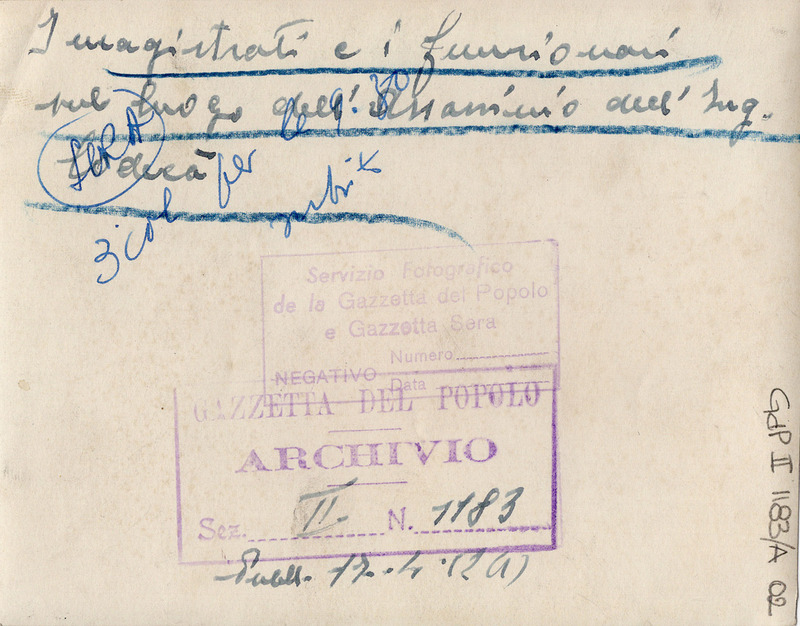 I magistrati e i funzionari
sul luogo dell'assassinio dell'Ing.
Codecà
SERA
3 col per le 9.30
subito
Servizio Fotografico
de la Gazzetta del Popolo
e Gazzetta Sera
Numero
NEGATIVO
Data
GAZZETTA DEL POPOLO
ARCHIVIO
Sez. II. N. 1183
Pubbl. 17.4.
GdP II 1183/A 02